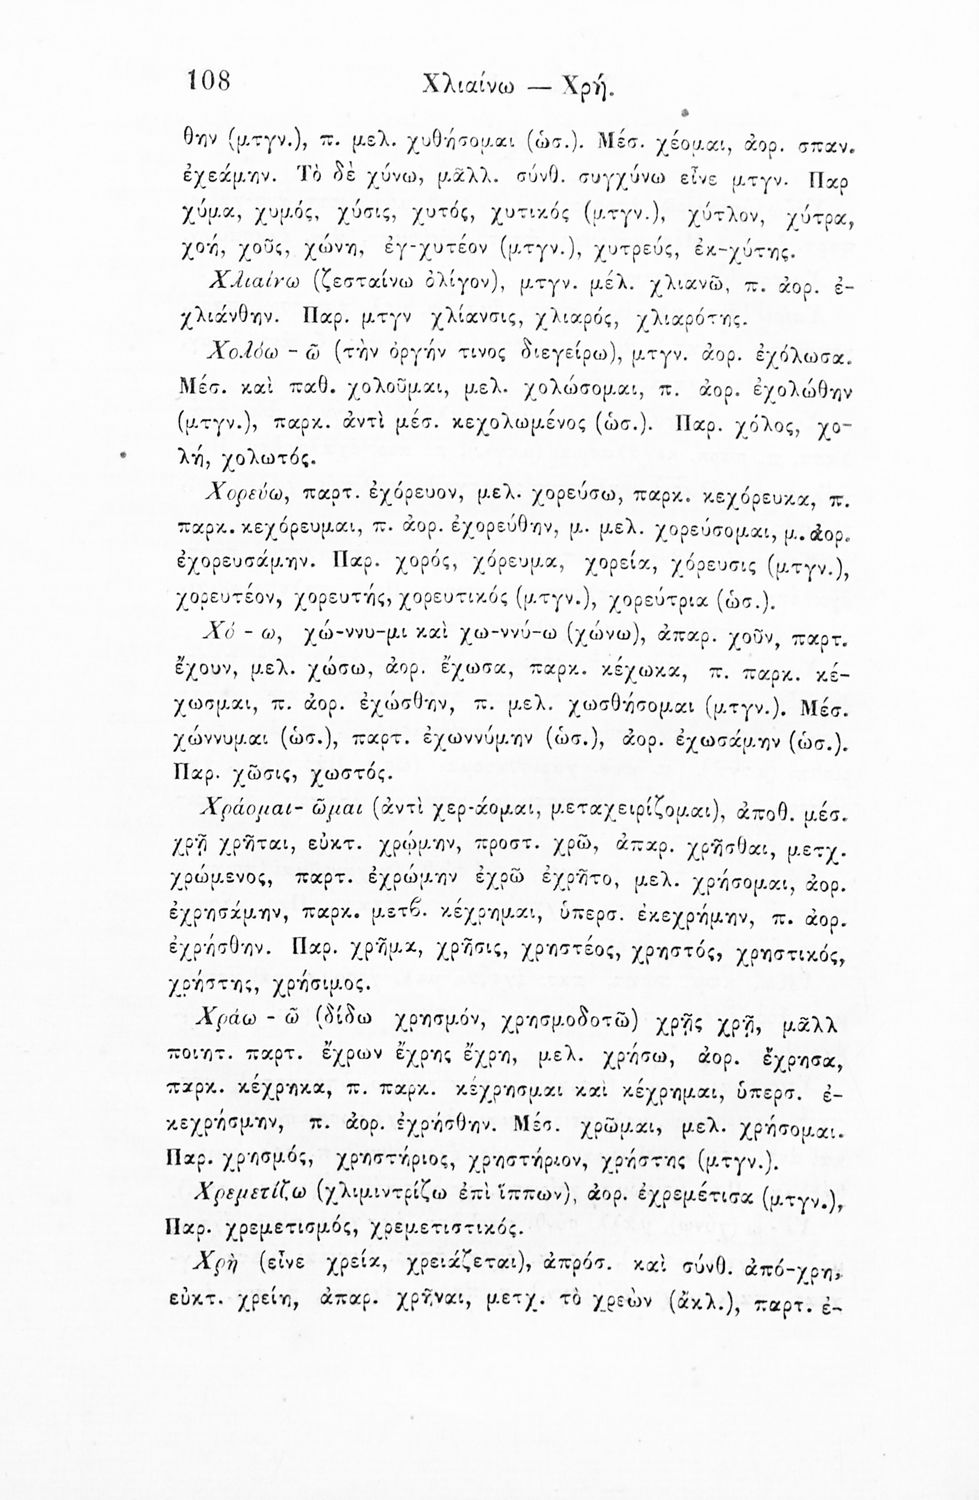 108 Χλιαίνω — Χρή.
θην (μτγν.), π. μελ. χυθήσομαι (ὡσ.). Μέσ. χέομαι, ἀορ. σπαν.
ἐχεάμην. Τὸ δὲ χύνω, μᾶλλ. σύνθ. συγχύνω εἶνε μτγν. Παρ
χύμα, χυμός, χύσις, χυτός, χυτικός (μτγν.), χύτλον, χύτρα,
χοή, χοῦς, χώνη, ἐγ-χυτέον (μτγν.), χυτρεύς, ἐκ-χύτης.
Χλιαίνω (ζεσταίνω ὀλίγον), μτγν. μέλ. χλιανῶ, π. ἀορ. ἐ-
χλιάνθην. Παρ. μτγν χλίανσις, χλιαρός, χλιαρότης.
Χολόω - ῶ (τὴν ὀργήν τινος διεγείρω), μτγν. ἀορ. ἐχόλωσα.
Μέσ. καὶ παθ. χολοῦμαι, μελ. χολώσομαι, π. ἀορ. ἐχολώθην
(μτγν.), παρκ. ἀντὶ μέσ. κεχολωμένος (ὡσ.). Παρ. χόλος, χο-
λή, χολωτός.
Χορεύω, παρτ. ἐχόρευον, μελ. χορεύσω, παρκ. κεχόρευκα, π.
παρκ. κεχόρευμαι, π. ἀορ. ἐχορεύθην, μ. μελ. χορεύσομαι, μ. ἀορ.
ἐχορευσάμην. Παρ. χορός, χόρευμα, χορεία, χόρευσις (μτγν.),
χορευτέον, χορευτής, χορευτικός (μτγν.), χορεύτρια (ὡσ.).
Χό - ω, χώ-ννυ-μι καὶ χω-ννύ-ω (χώνω), ἀπαρ. χοῦν, παρτ.
ἔχουν, μελ. χώσω, ἀορ. ἔχωσα, παρκ. κέχωκα, π. παρκ. κέ-
χωσμαι, π. ἀορ. ἐχώσθην, π. μελ. χωσθήσομαι (μτγν.). Μέσ.
χώννυμαι (ὡσ.), παρτ. ἐχωννύμην (ὡσ.), ἀορ. ἐχωσάμην (ὡσ.).
Παρ. χῶσις, χωστός.
Χράομαι- ῶμαι (ἀντὶ χερ-άομαι, μεταχειρίζομαι), ἀποθ. μέσ.
χρῇ χρῆται, εὐκτ. χρῴμην, προστ. χρῶ, ἀπαρ. χρῆσθαι, μετχ.
χρώμενος, παρτ. ἐχρώμην ἐχρῶ ἐχρῆτο, μελ. χρήσομαι, ἀορ.
ἐχρησάμην, παρκ. μετβ. κέχρημαι, ὑπερσ. ἐκεχρήμην, π. ἀορ.
ἐχρήσθην. Παρ. χρῆμα, χρῆσις, χρηστέος, χρηστός, χρηστικός,
χρήστης, χρήσιμος.
Χράω - ῶ (δίδω χρησμόν, χρησμοδοτῶ) χρῇς χρῇ, μᾶλλ
ποιητ. παρτ. ἔχρων ἔχρης ἔχρη, μελ. χρήσω, ἀορ. ἔχρησα,
παρκ. κέχρηκα, π. παρκ. κέχρησμαι καὶ κέχρημαι, ὑπερσ. ἐ-
κεχρήσμην, π. ἀορ. ἐχρήσθην. Μέσ. χρῶμαι, μελ. χρήσομαι.
Παρ. χρησμός, χρηστήριος, χρηστήριον, χρήστης (μτγν.).
Χρεμετίζω (χλιμιντρίζω ἐπὶ ἵππων), ἀορ. ἐχρεμέτισα (μτγν.),
Παρ. χρεμετισμός, χρεμετιστικός.
Χρὴ (εἶνε χρεία, χρειάζεται), ἀπρόσ. καὶ σύνθ. ἀπό-χρη,
εὐκτ. χρείη, ἀπαρ. χρῆναι, μετχ. τὸ χρεὼν (ἄκλ.), παρτ. ἐ-